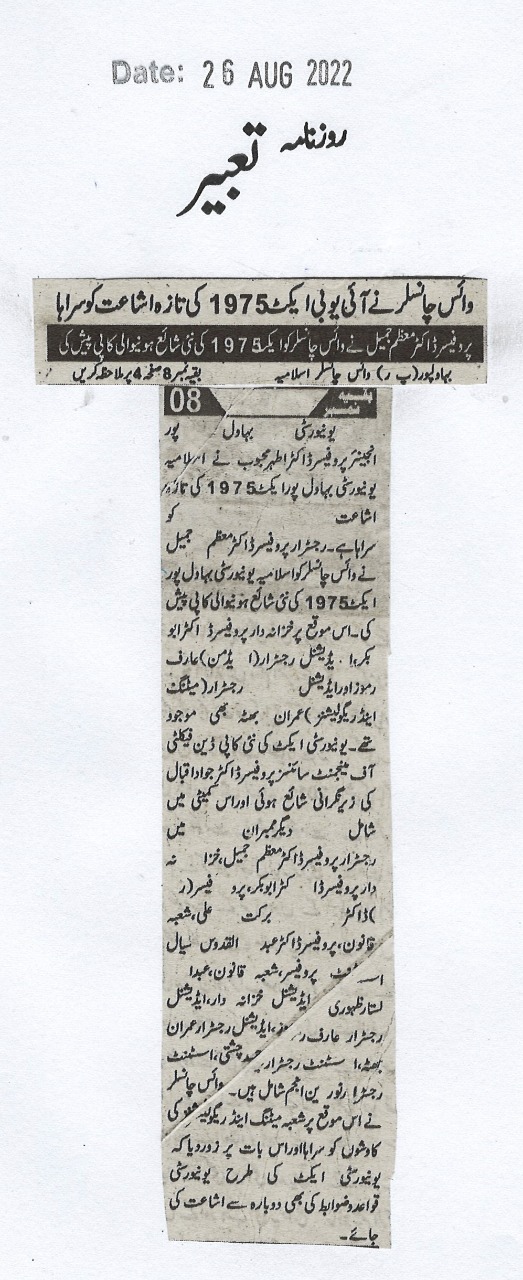 Date: 26 AUG 2022
روزنامہ تعبیر
وائس چانسلر نے آئی یو بی ایکٹ 1975 کی تازہ اشاعت کو سراہا
پروفیسر ڈاکٹر معظم جمیل نے وائس چانسلر کو ایکٹ 1975 کی نئی شائع ہونیوالی کاپی پیش کی
بہاولپور (پ ر) وائس چانسلر اسلامیہ بقیہ نمبر 8 صفحہ 4 پر ملاحظہ کریں
بقیہ نمبر 08
یونیورسٹی بہاول پور
انجینئر پروفیسر ڈاکٹر اطہر محبوب نے اسلامیہ
یونیورسٹی بہاول پور ایکٹ 1975 کی تازہ
اشاعت کو
سراہا ہے۔ رجسٹرار پروفیسر ڈاکٹر معظم جمیل
نے وائس چانسلر کو اسلامیہ یونیورسٹی بہاول پور
ایکٹ 1975 کی نئی شائع ہونیوالی کاپی پیش
کی۔ اس موقع پر خزانہ دار پروفیسر ڈ اکٹر ابو
بکر، ا یڈیشنل رجسٹرار (ا یڈمن) عارف
رموز اور ایڈیشنل رجسٹرار (میٹنگ
اینڈ ریگولیشنز) عمران بھٹہ بھی موجود
تھے۔ یونیورسٹی ایکٹ کی نئی کاپی ڈین فیکلٹی
آف مینجمنٹ سائنسز پروفیسر ڈاکٹر جواد اقبال
کی زیر نگرانی شائع ہوئی اور اس کمیٹی میں
شامل دیگر ممبران میں
رجسٹرار پروفیسر ڈاکٹر معظم جمیل، خزا نہ
دار پروفیسر ڈا کٹر ابوبکر، پرو فیسر (ر
) ڈاکٹر برکت علی، شعبہ
قانون، پروفیسر ڈاکٹر عبد القدوس سیال
پروفیسر، شعبہ قانون، عبدا
لستار ظہوری ایڈیشنل خزانہ دار، ایڈیشنل
رجسٹرار عارف ایڈیشنل رجسٹرار عمران
بھٹہ، ا سسٹنٹ رجسٹرار چشتی، اسسٹنٹ
رجسٹرا ر نور ین انجم شامل ہیں۔ وائس چانسلر
نے اس موقع پر شعبہ میٹنگ اینڈ ریگولیشنز کی
کاوشوں کو سراہا اور اس بات پر زور دیا کہ
یونیورسٹی ایکٹ کی طرح یونیورسٹی
قواعد و ضوابط کی بھی دوبارہ سے اشاعت کی
جائے۔